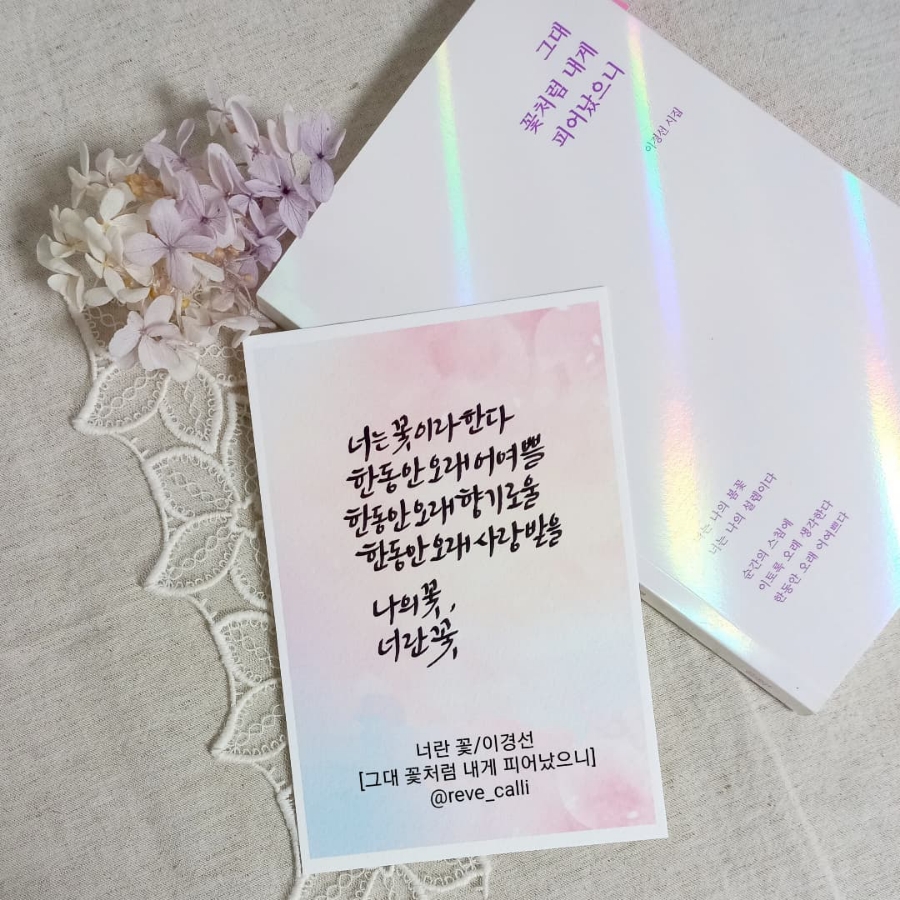 그대
꽃처럼 내게
피어났으니
이경선 시집
너는 나의 봄꽃
너는 나의 설렘이다
순간의 스침에
이토록 오래 생각한다
한동안 오래 어여쁘다
너는 꽃이라 한다
한동안 오래 어여쁠
한동안 오래 향기로울
한동안 오래 사랑받을
나의 꽃,
너란 꽃,
너란 꽃/이경선
[그대 꽃처럼 내게 피어났으니]
@reve_calli